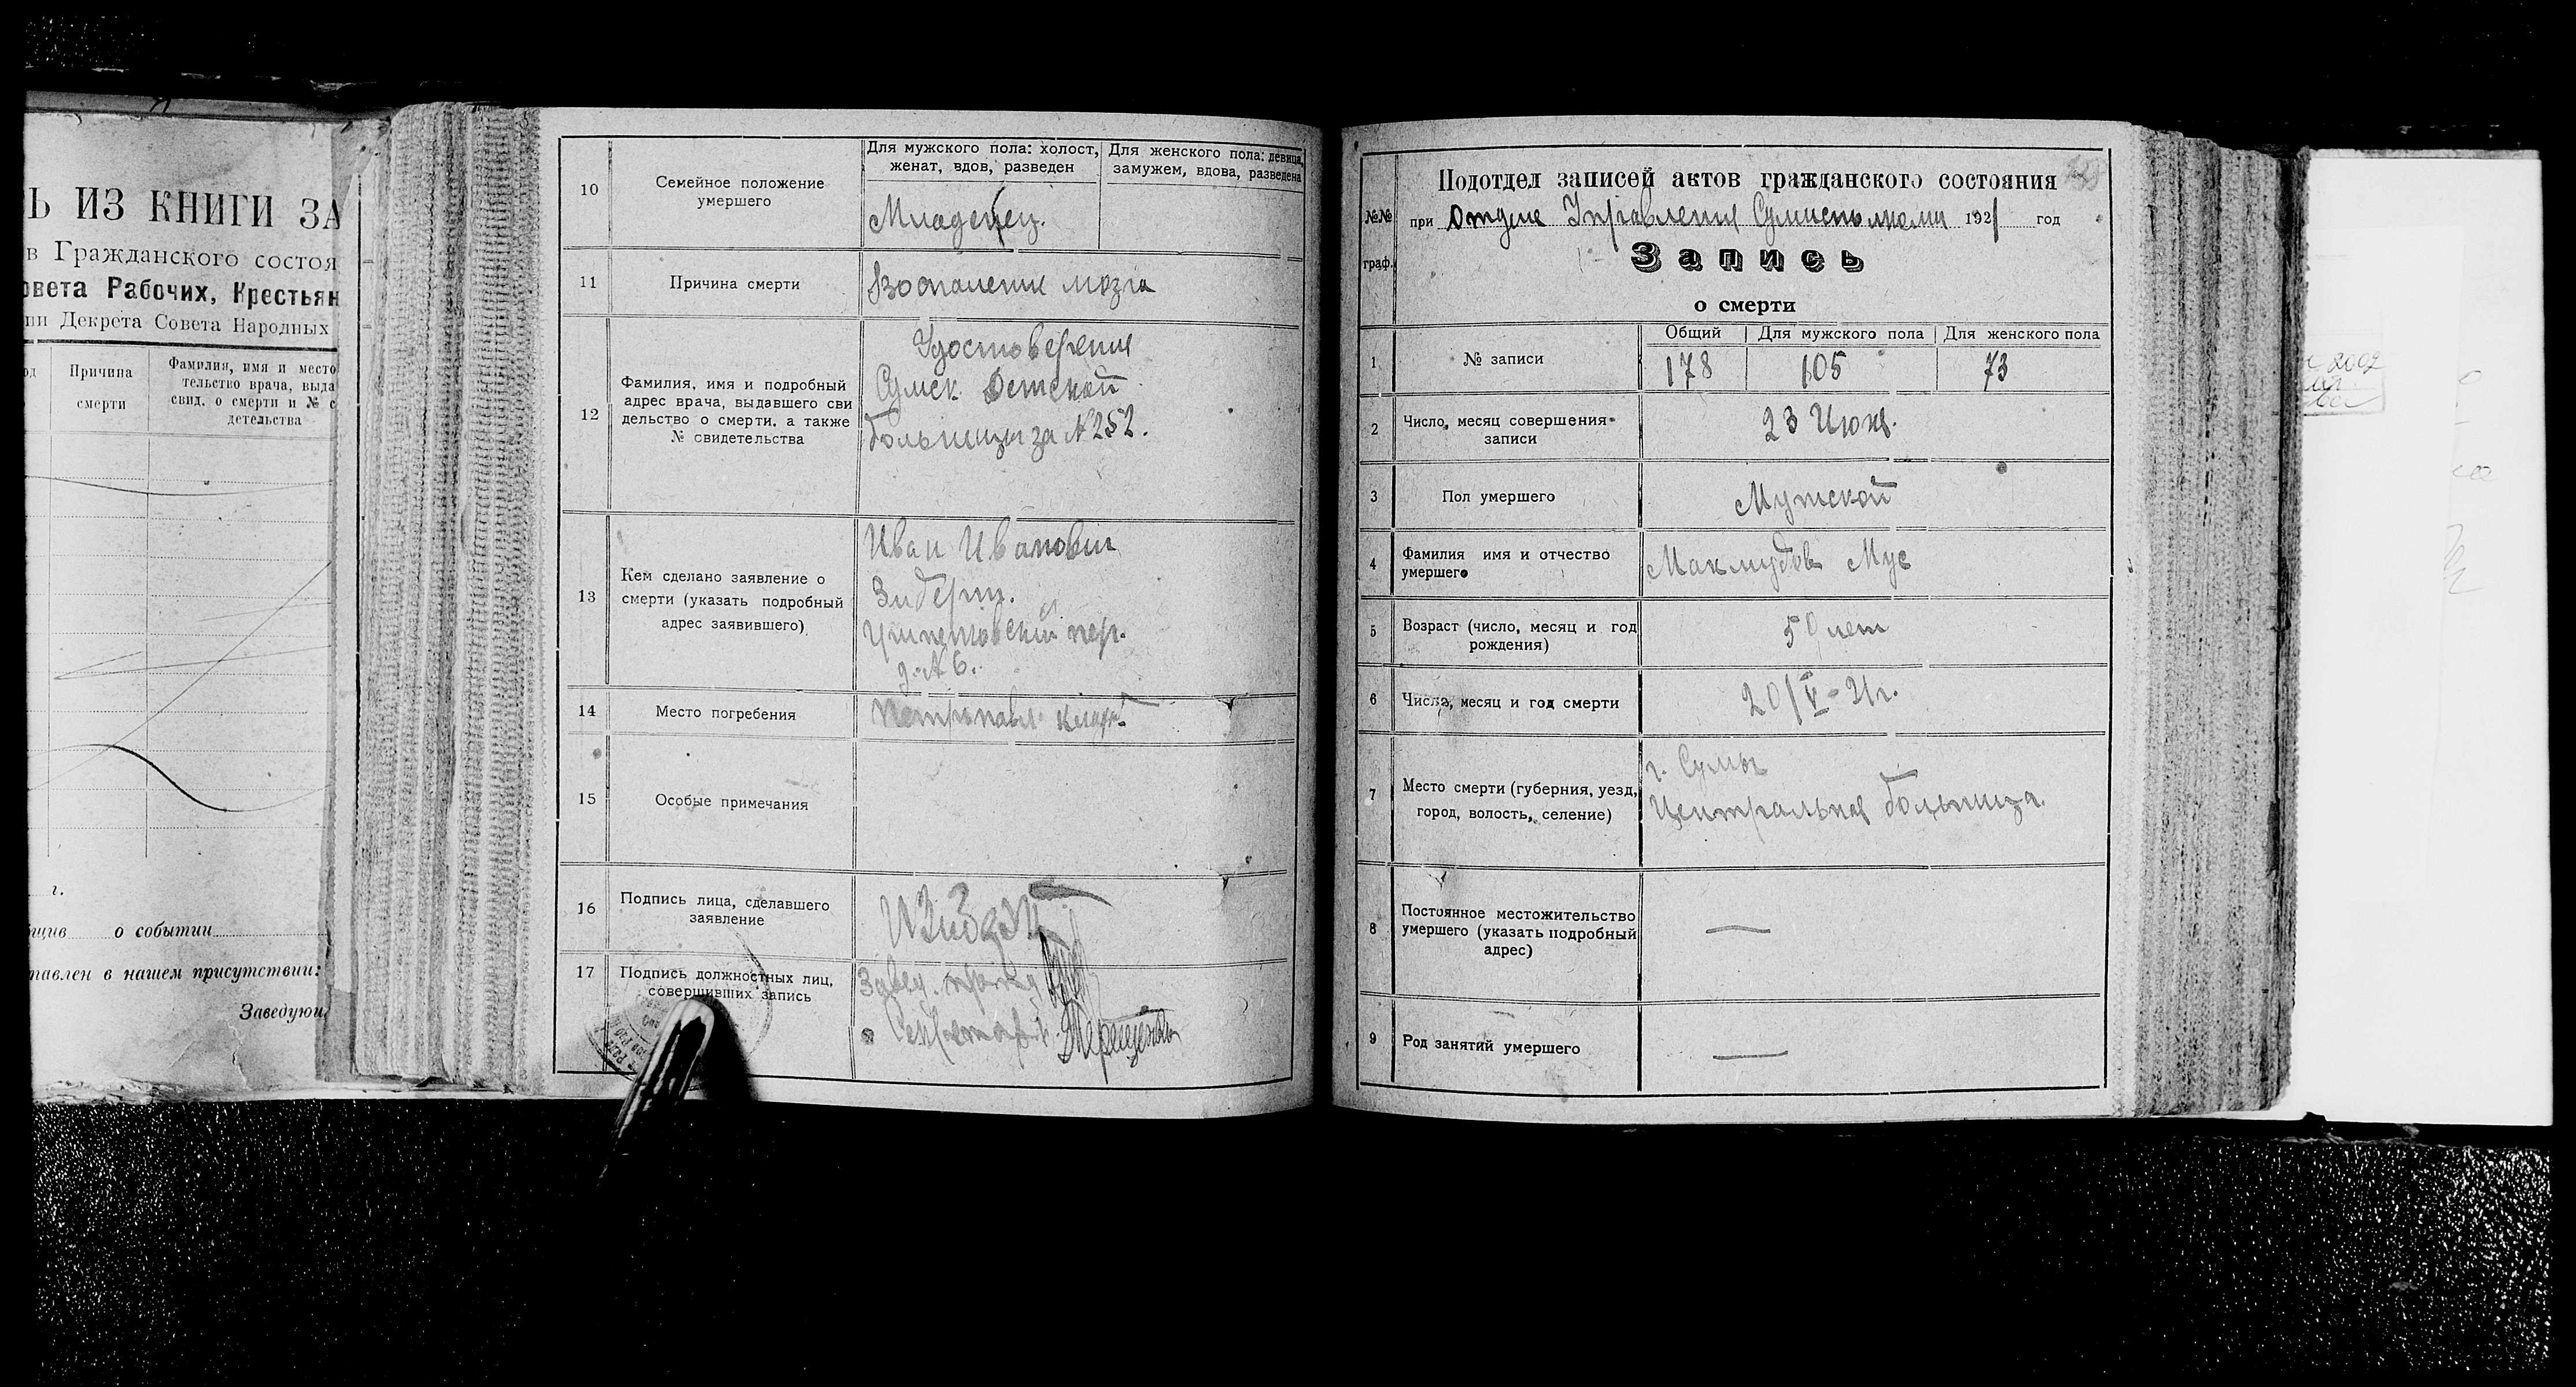 Ь ИЗ КНИГИ ЗА
в Гражданского состоя
овета Рабочих, Крестьян
ии Декрета Совета Народных
Причина
смерти
Фамилия, имя и место
тельство врача, выда
свид. о смерти и № с
детельства
г.
о событии
тавлен в нашем присутствии:
Заведую
10
Семейное положение
умершего
Для мужского пола: холост,
женат, вдов, разведен
Для женского пола: девица,
замужем, вдова, разведена
Младенец.
11
Причина смерти
Воспаление мозга
12
Фамилия, имя и подробный
адрес врача, выдавшего сви
дельство о смерти, а также
№ свидетельства
Удостоверения
Сумск. Детской
больницы за № 252.
13
Кем сделано заявление о
смерти (указать подробный
адрес заявившего)
Иван Иванович
пер.
д. № 6.
14
Место погребения
Петропавл. кладб.
15
Особые примечания
16
Подпись лица, сделавшего
заявление
17
Подпись должностных лиц,
совершивших запись
Завед.
Секретарь
Подотдел записей актов гражданского состояния
№№
граф.
при Отделе Управления Сумисполкома 1921 год
Запись
о смерти
1
№ записи
Общий
Для мужского пола
Для женского пола
178
105
73
2
Число, месяц совершения
записи
23 Июня.
3
Пол умершего
Мужской
4
Фамилия имя и отчество
умершего
Махмудов Мус
5
Возраст (число, месяц и год
рождения)
50 лет
6
Число, месяц и год смерти
20/V-21г.
7
Место смерти (губерния, уезд,
город, волость, селение)
г. Сумы
Центральная больница.
8
Постоянное местожительство
умершего (указать подробный
адрес)
—
9
Род занятий умершего
—